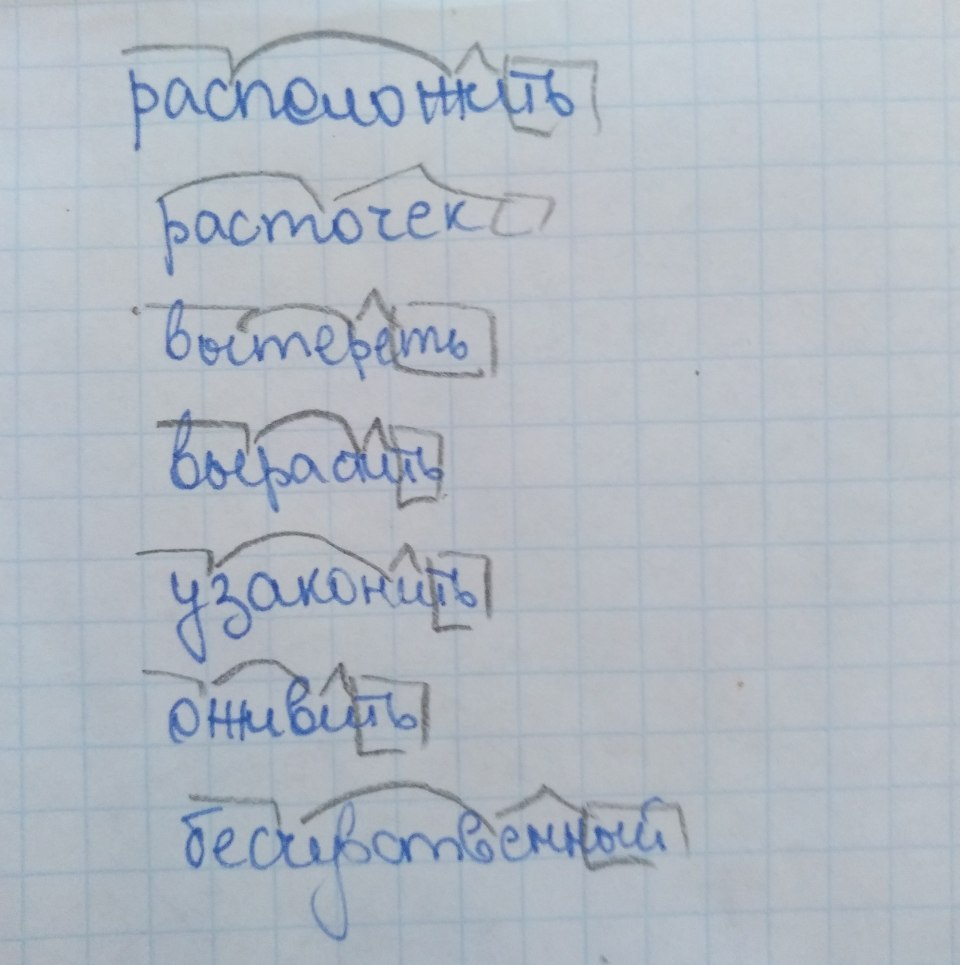 расположить
расточек
вытереть
вырасить
узаконить
оживить
бесчувственный